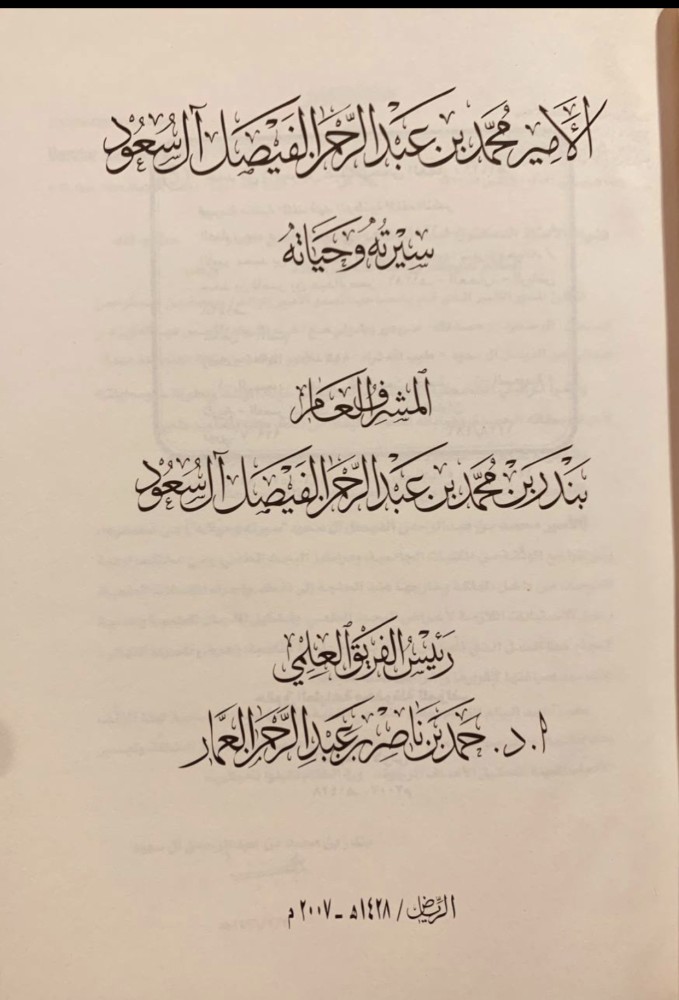 الأمير محمد بن عبد الرحمن الفيصل آل سعود
سيرته وحياته
المشرف العام
بندر بن محمد بن عبد الرحمن الفيصل آل سعود
رئيس الفريق العلمي
أ. د. حمد بن ناصر بن عبد الرحمن العمار
الرياض / ١٤٢٨هـ - ٢٠٠٧م